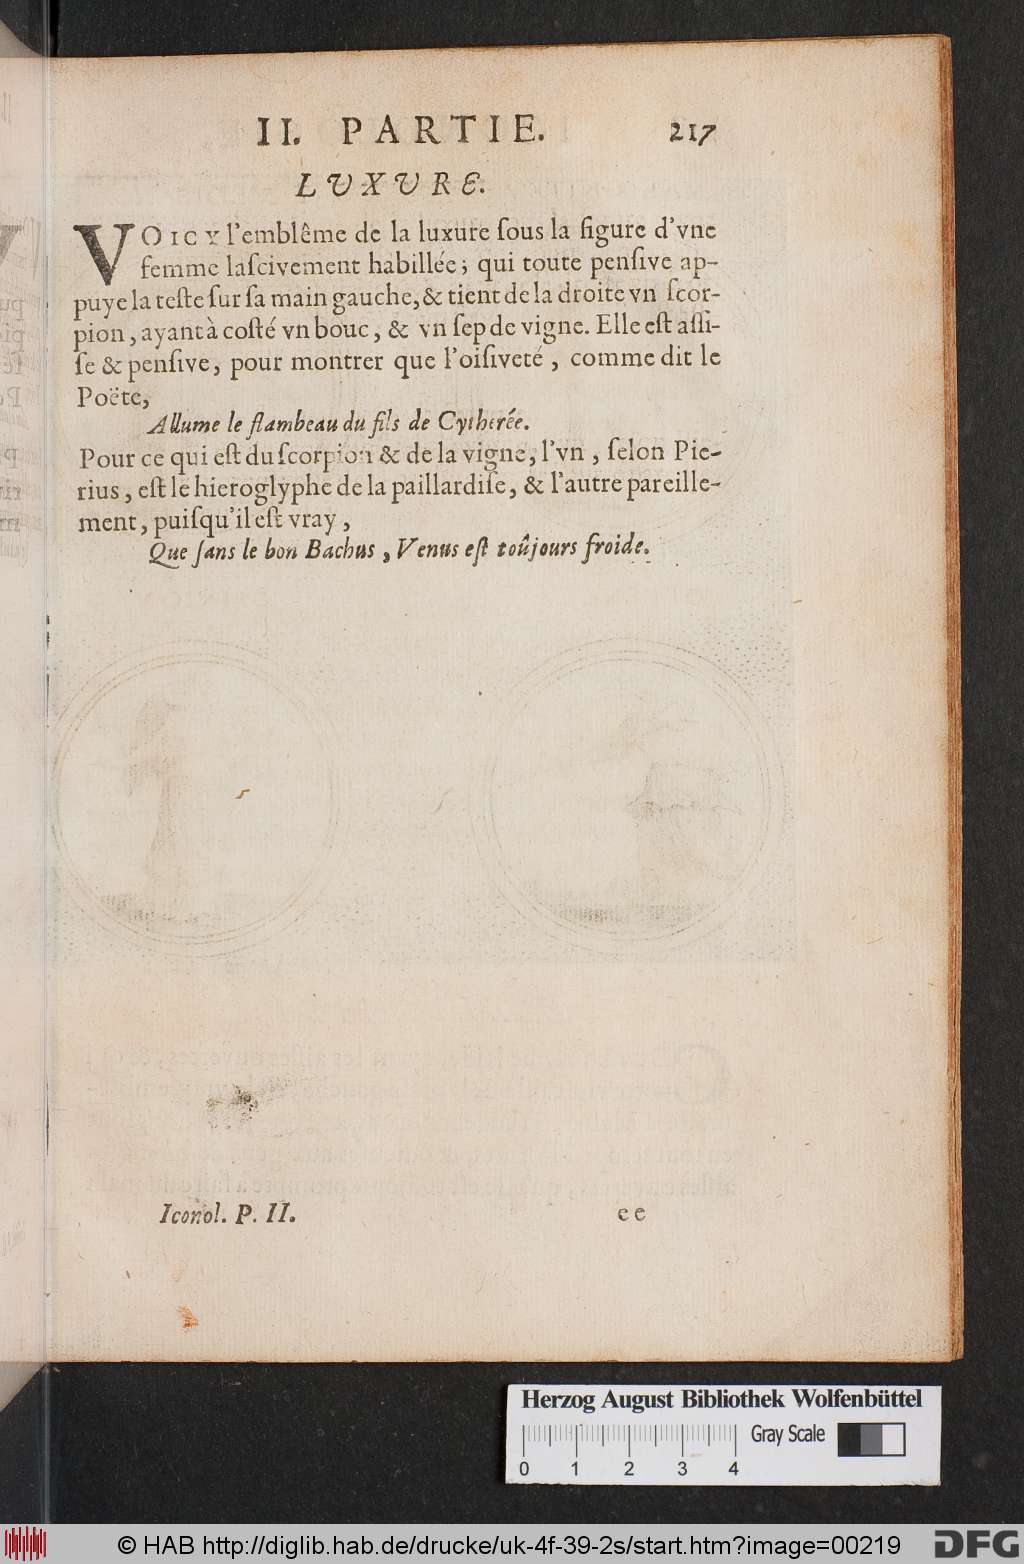 II. PARTIE. 217
LVXVRE.
VOICY l'emblême de la luxure ſous la figure d'vne
femme laſcivement habillée; qui toute penſive ap-
puye la teſte ſur ſa main gauche, & tient de la droite vn ſcor-
pion, ayant à coſté vn bouc, & vn ſep de vigne. Elle eſt aſſi-
ſe & penſive, pour montrer que l'oiſiveté, comme dit le
Poëte,
Allume le flambeau du fils de Cytherée.
Pour ce qui eſt du ſcorpion & de la vigne, l'vn, ſelon Pie-
rius, eſt le hieroglyphe de la paillardiſe, & l'autre pareille-
ment, puiſqu'il eſt vray,
Que ſans le bon Bachus, Venus eſt toûjours froide.
Iconol. P. II. ee
Herzog August Bibliothek Wolfenbüttel
Gray Scale
0 1 2 3 4
© HAB http://diglib.hab.de/drucke/uk-4f-39-2s/start.htm?image=00219
DFG